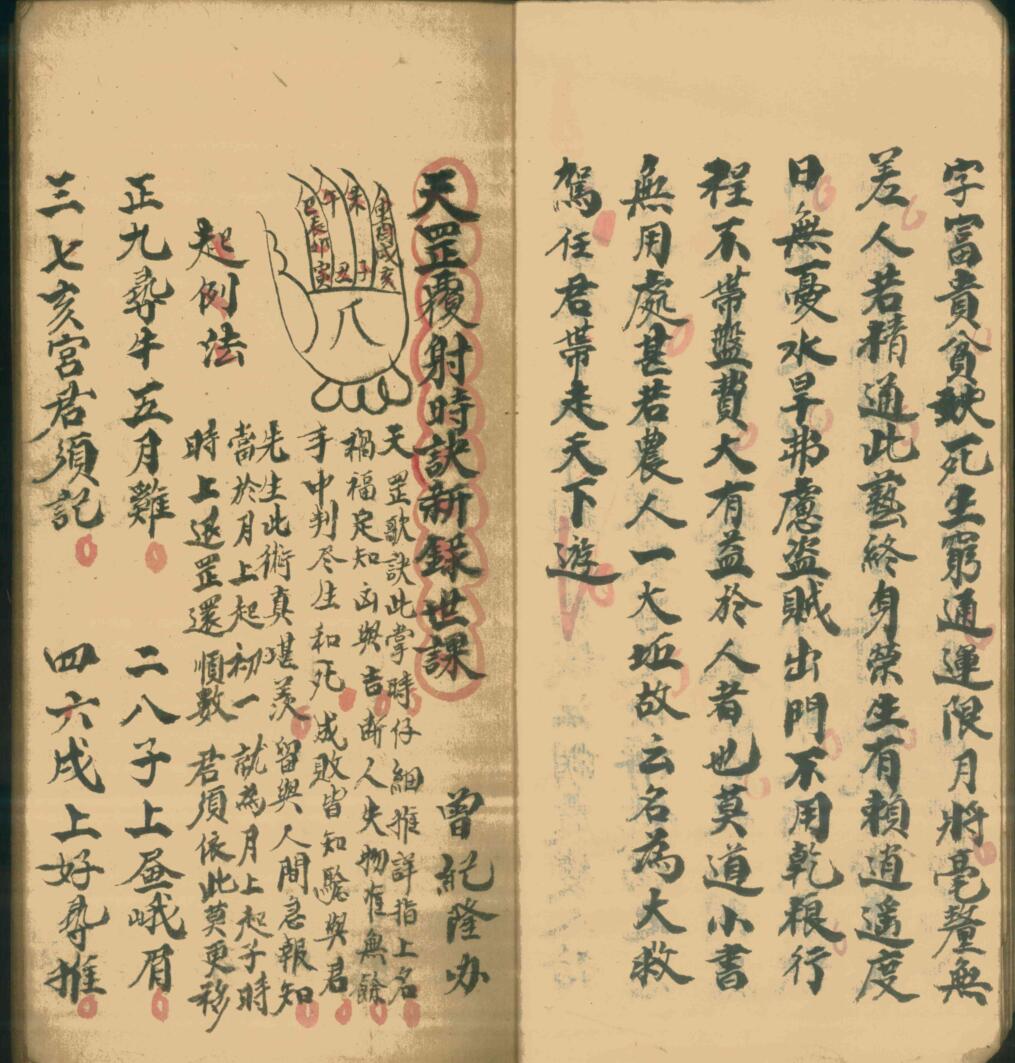 字富貴貧缺死生窮通運限月將毫釐無
差人若精通此藝終身榮生有賴逍遥度
日無憂水旱弗慮盜賊出門不用乾粮行
程不帶盤費大有益於人者也莫道小書
無用處甚若農人一大坵故云名為大救
駕任君帶走天下遊
天罡覆射時訣新錄世課
曾紀隆办
天罡歌訣此掌時仔細推詳指上名
禍福定知凶與吉断人失物准無餘
手中判尽生和死 成敗皆知驗與君
先生此術真堪羡 留與人間急報知
當於月上起初一 就為月上起子時
時上返罡還順數 君須依此莫更移
巳辰卯寅
午 丑
未 子
申酉戌亥
八
起例法
正九尋牛五月雞 二八子上昼峨眉
三七亥宮君須記 四六戌上好尋推